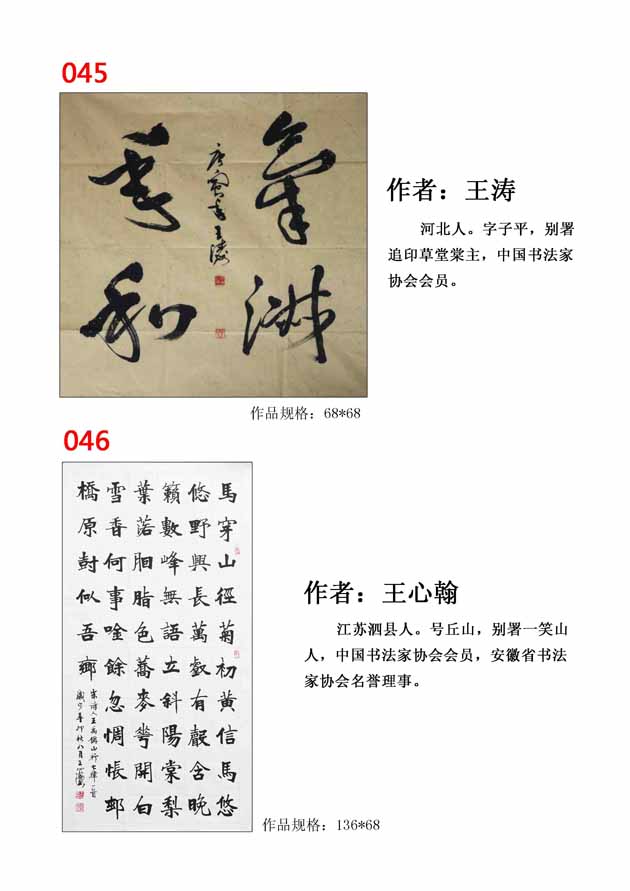 045
氣淑
年和
庚寅書王濤
作者：王涛
河北人。字子平，别署
追印草堂棠主，中国书法家
协会会员。
作品规格：68*68
046
馬穿山徑菊初黃信馬悠
悠野興長萬壑有聲含晚
籟數峰無語立斜陽棠梨
葉落胭脂色蕎麥花開白
雪香何事唫餘忽惆悵邨
橋原樹似吾鄉
宋詩人王禹偁山行七律一首
歲次辛卯秋八月王心翰
作者：王心翰
江苏泗县人。号丘山，别署一笑山
人，中国书法家协会会员，安徽省书法
家协会名誉理事。
作品规格：136*68